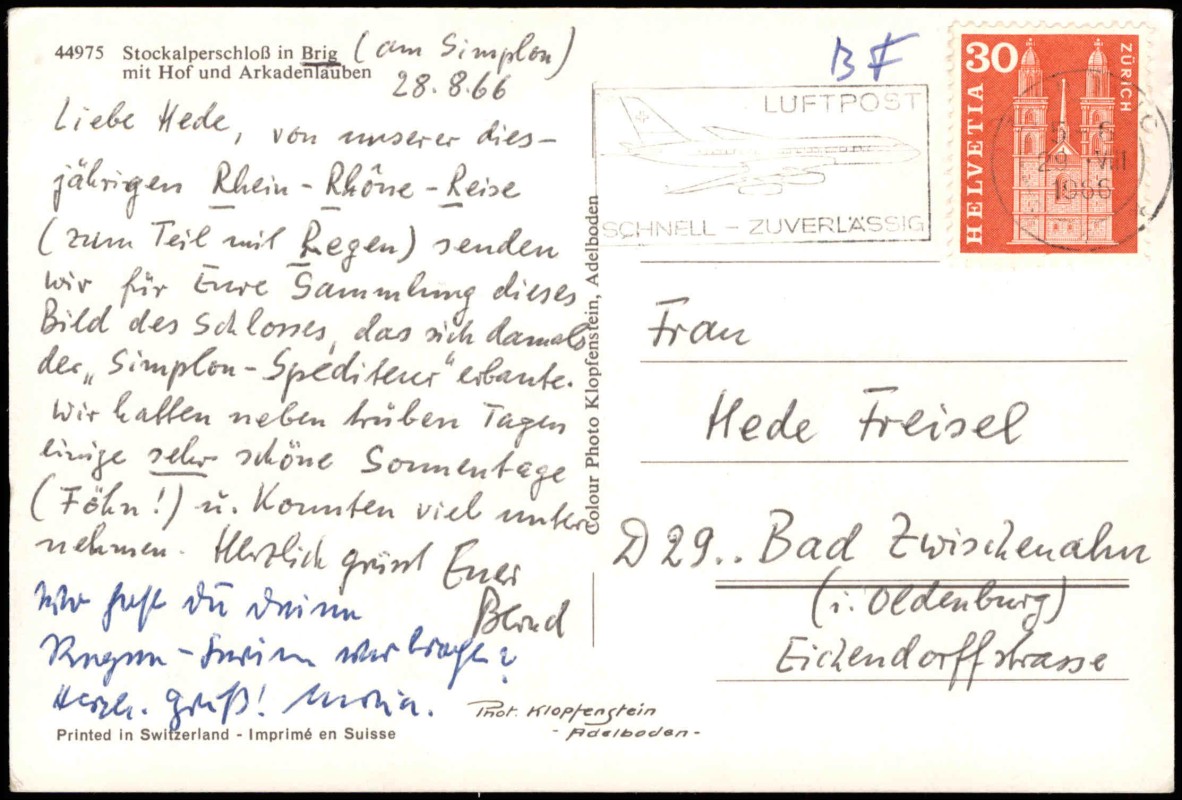 44975 Stockalperschloß in Brig (am Simplon)
mit Hof und Arkadenlauben
28.8.66
Liebe Hede, von unserer dies-
jährigen Rhein-Rhône-Reise
(zum Teil mit Regen) senden
wir für Eure Sammlung dieses
Bild des Schlosses, das sich damals
der „Simplon-Spediteur“ erbaute.
Wir hatten neben trüben Tagen
einige sehr schöne Sonnentage
(Föhn!) u. konnten viel unter-
nehmen. Herzlich grüsst Euer
Bernd
Wo hast du deine
Regen-Ferien verbracht?
Herzl. Gruß! Maria.
Printed in Switzerland - Imprimé en Suisse
Phot. Klopfenstein
- Adelboden -
Colour Photo Klopfenstein, Adelboden
BF
LUFTPOST
SCHNELL - ZUVERLÄSSIG
30
HELVETIA
ZÜRICH
29. VIII
1966
Frau
Hede Freisel
D 29.. Bad Zwischenahn
(i. Oldenburg)
Eichendorffstrasse